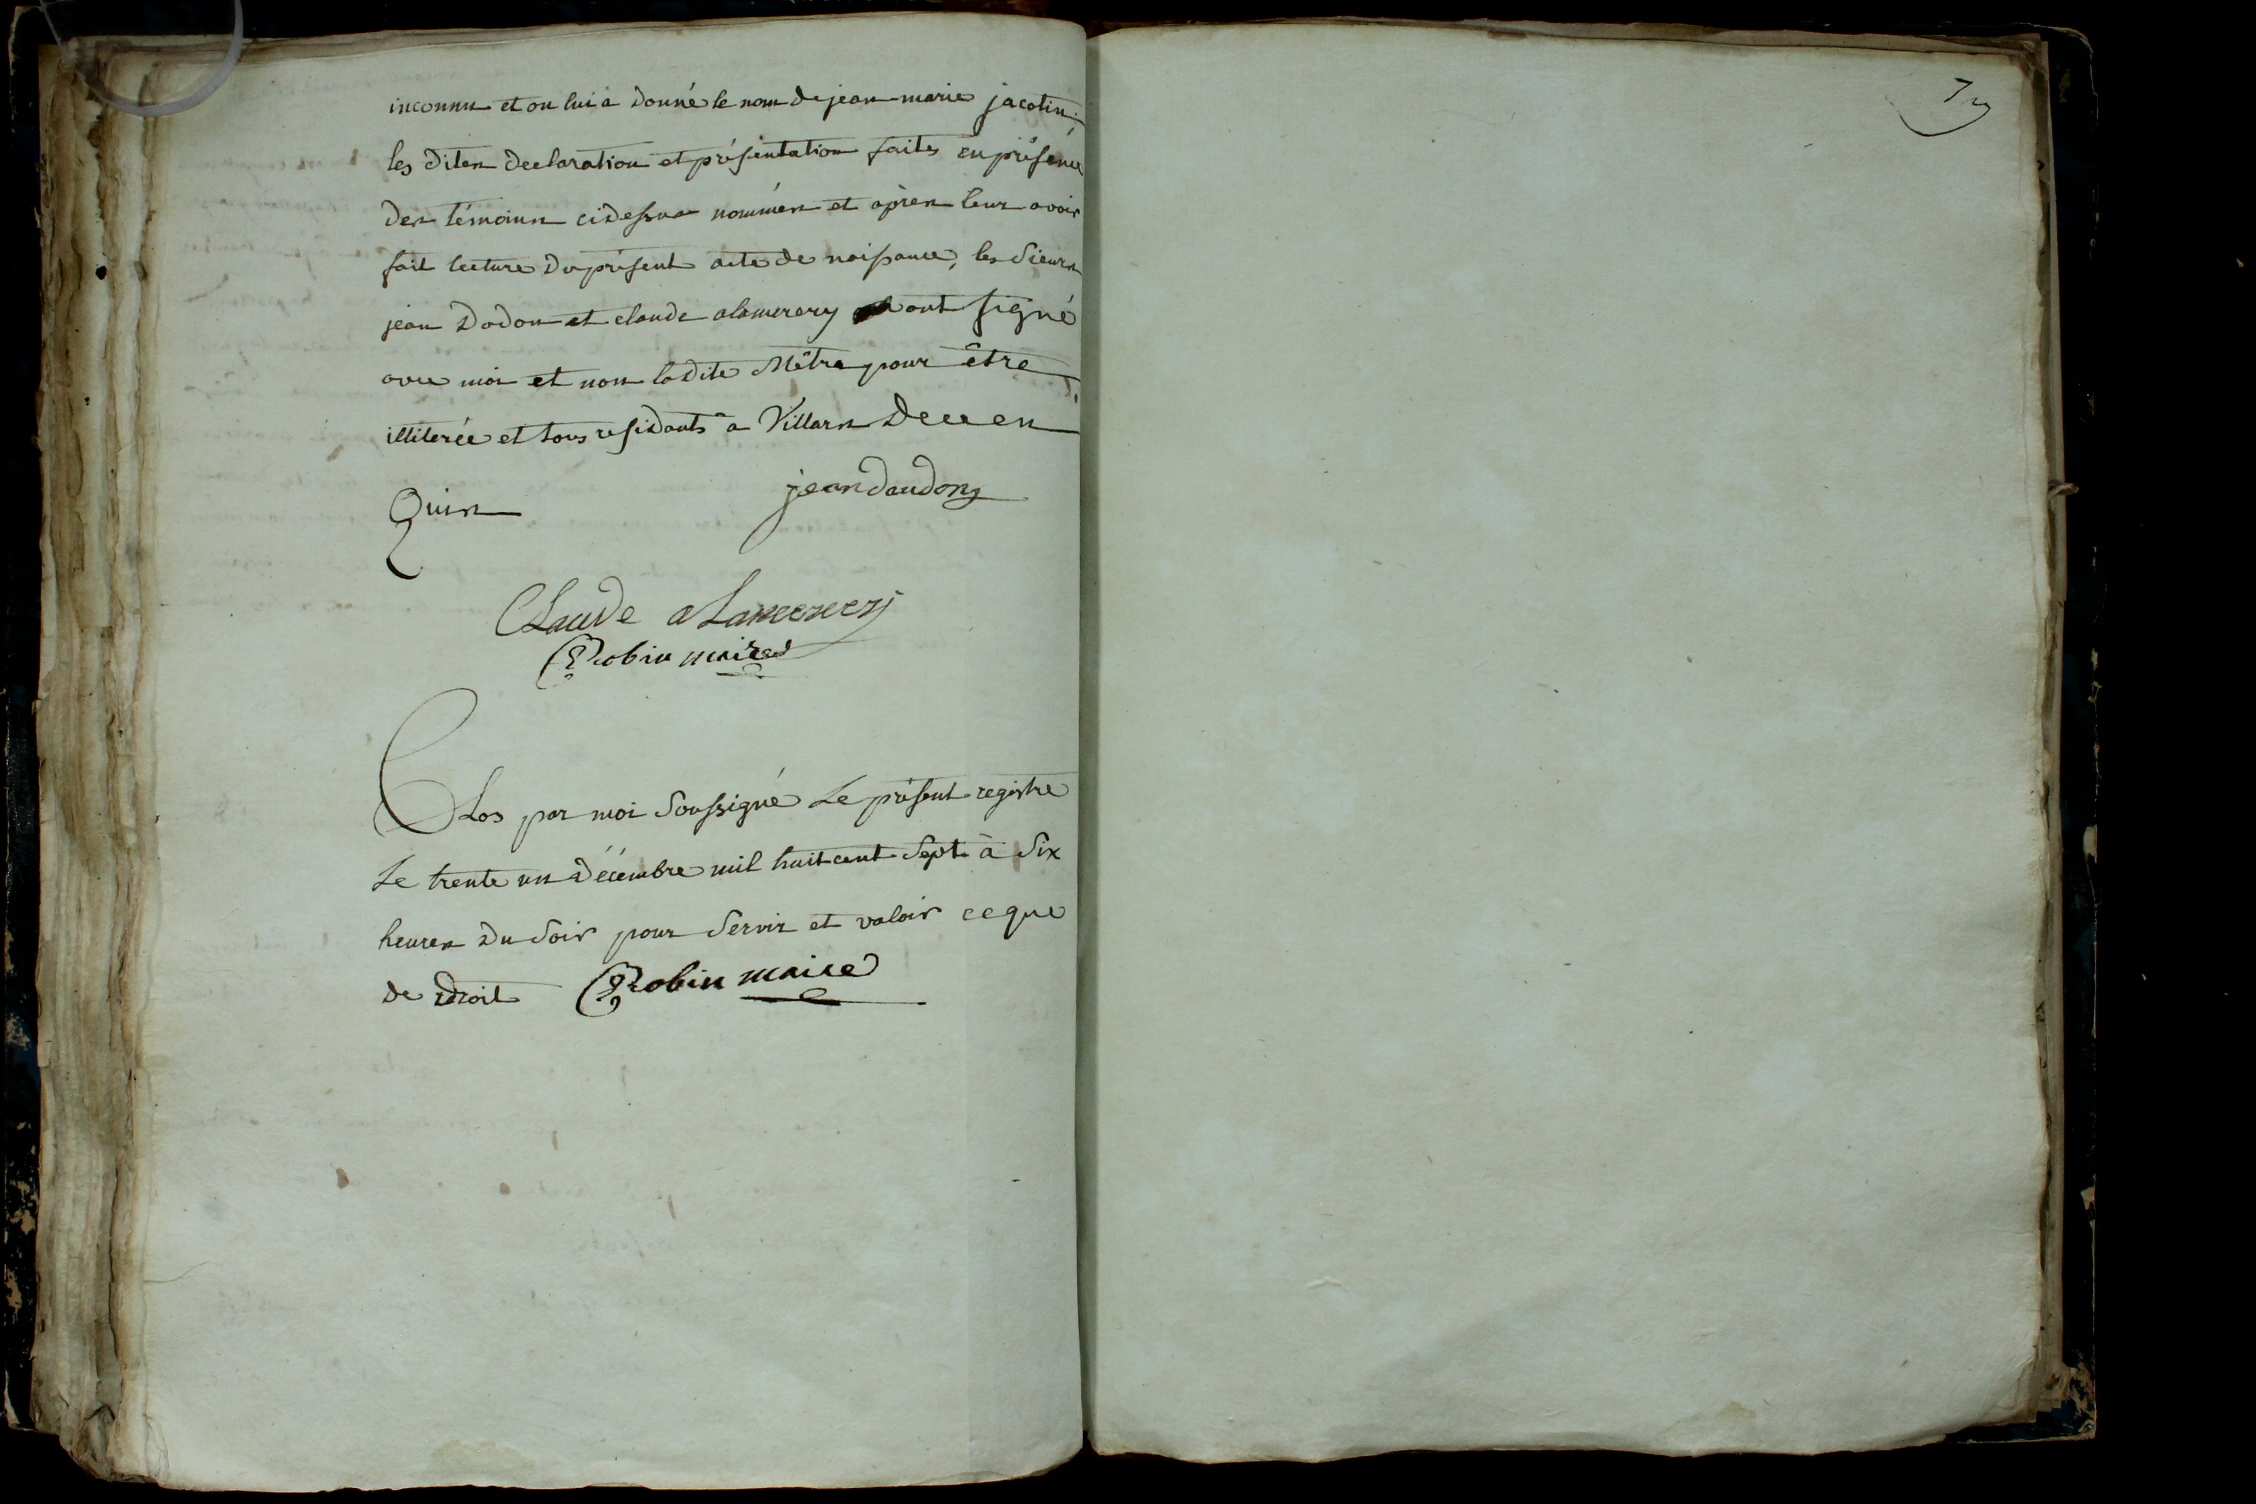 inconnu et on lui a donné le nom de jean-marie jacotin.
les dites declaration et présentation faites en présence
des témoins cidessus nommés et après leur avoir
fait lecture du présent acte de naissance, les sieurs
jean Dodon et claude alamerery ont signé
avec moi et non ladite Mêtra pour être
illiterée et tous residants à Villars de ce en
Quis
jean daudong
CLaude aLamerery
Robin maire
CLos par moi soussigné Le présent registre
Le trente un décembre mil huit cent sept à six
heures du soir pour servir et valoir ce que
de droit Robin maire